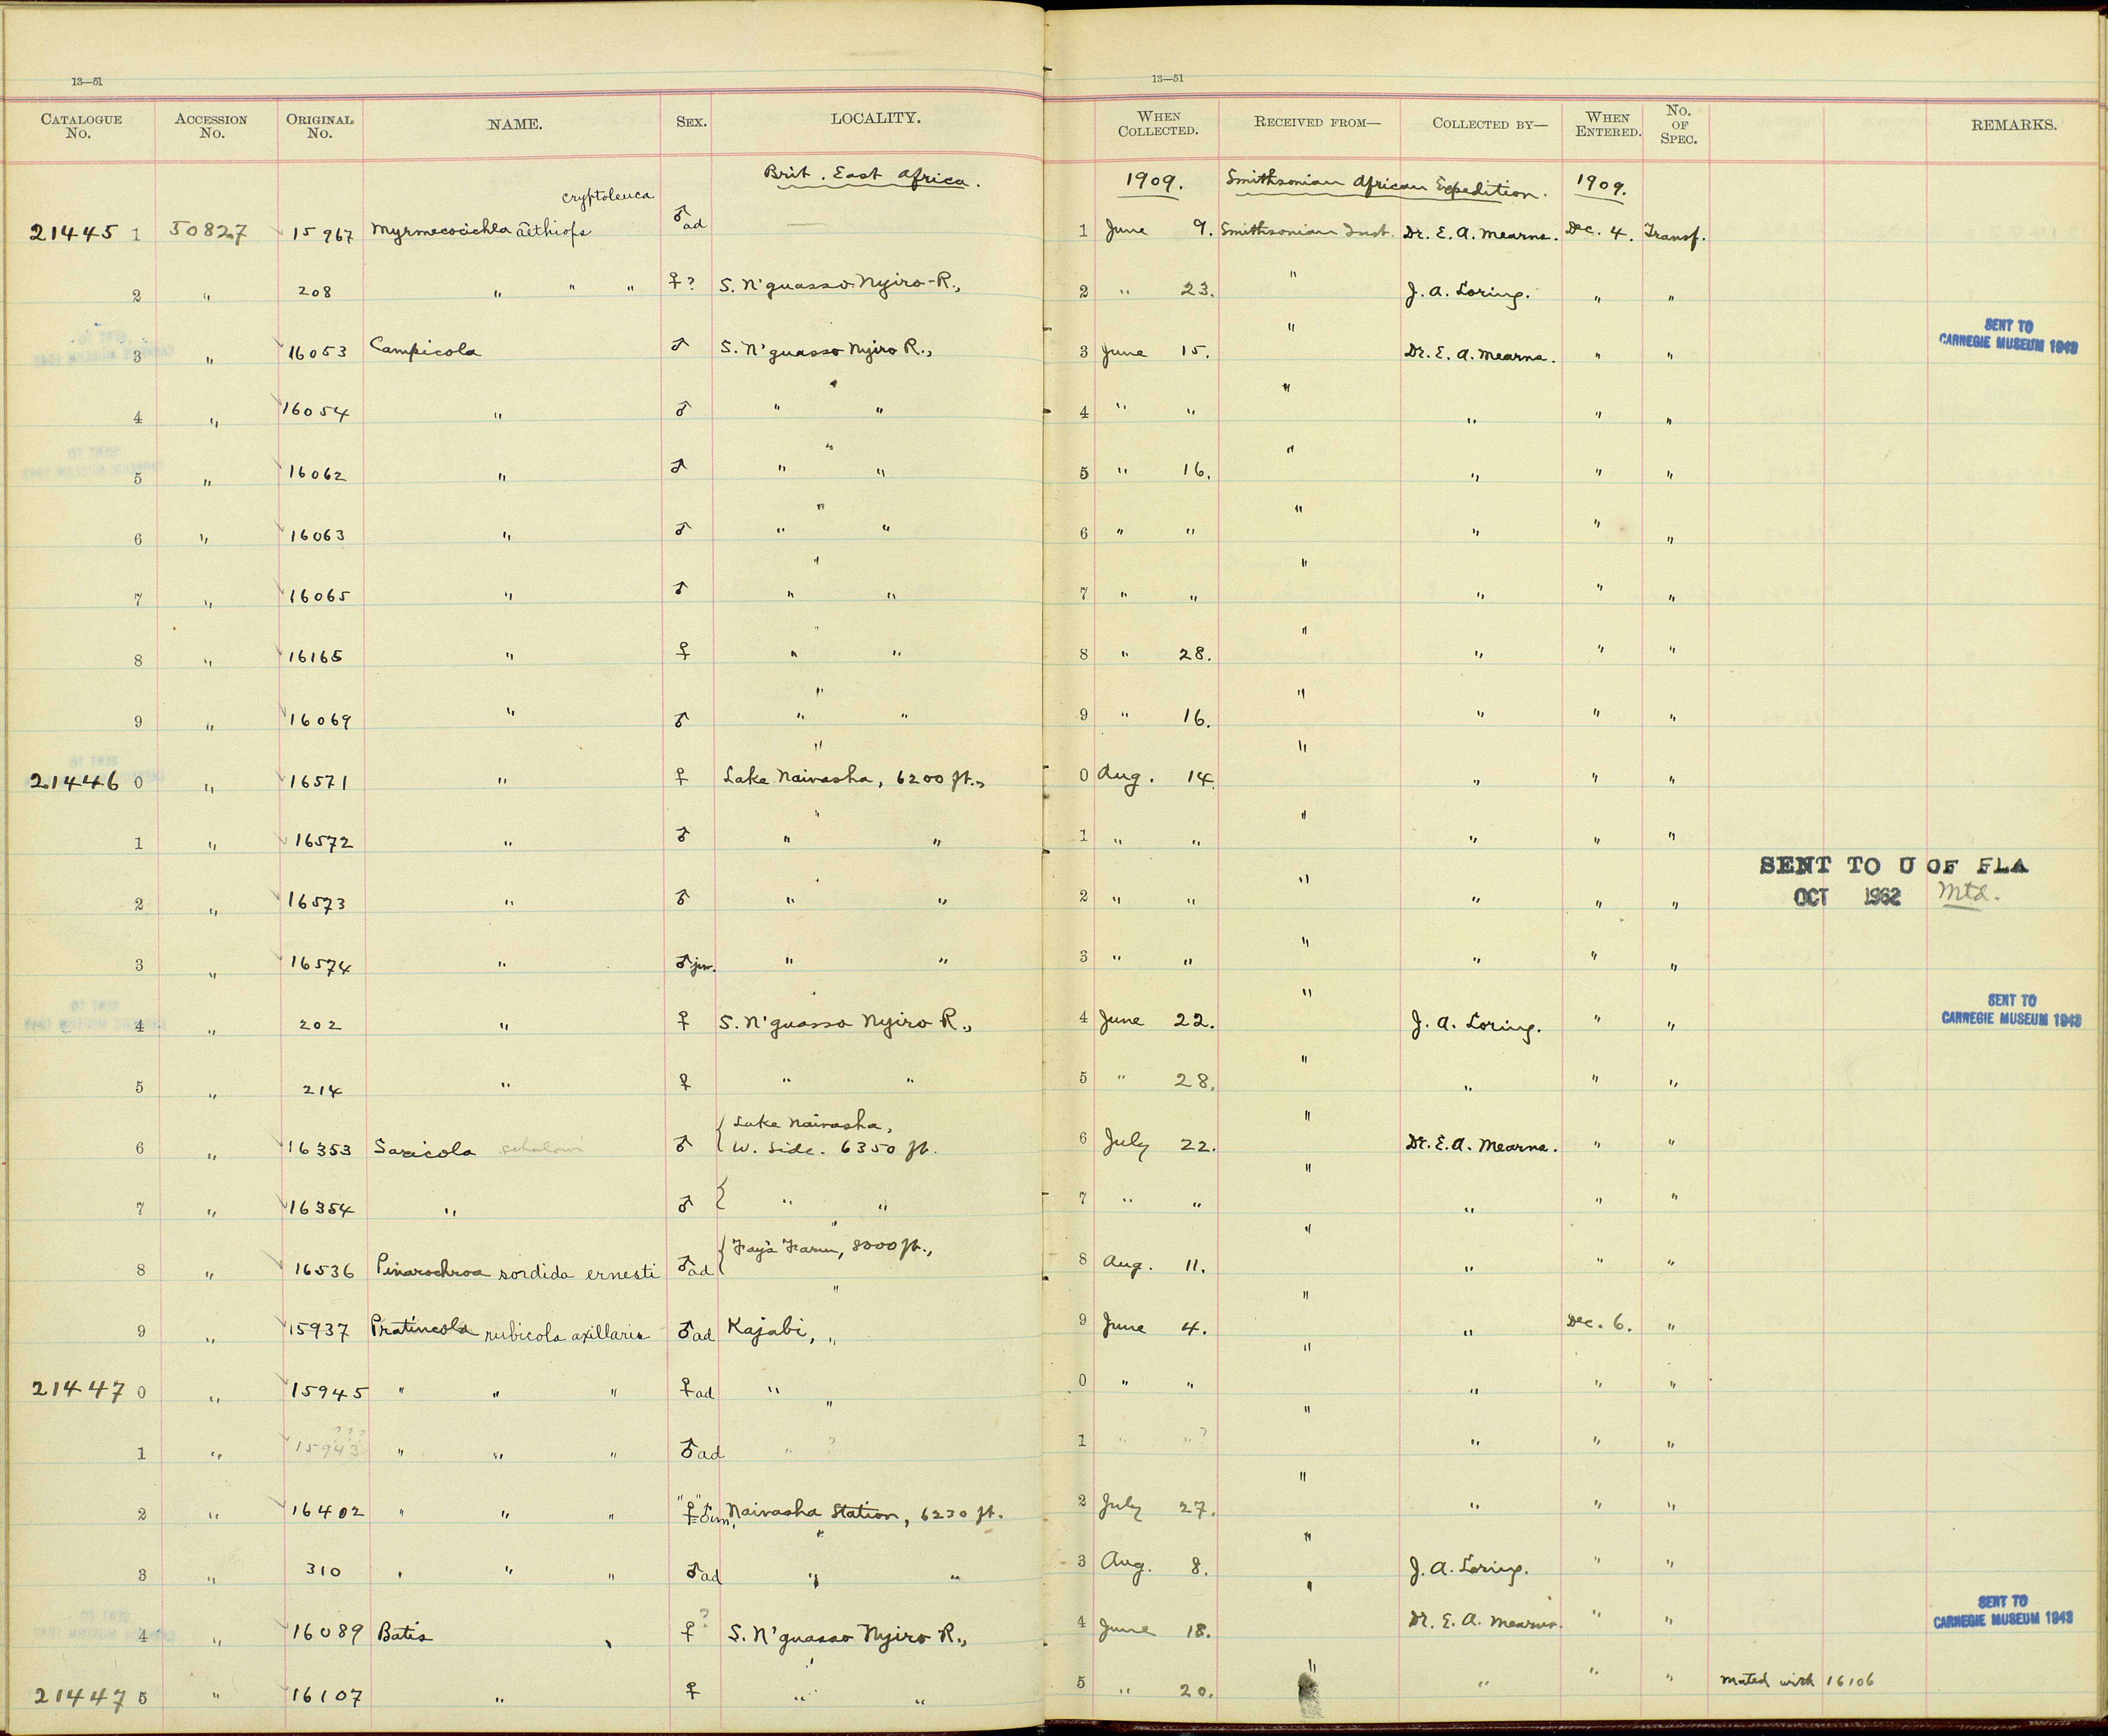 13—51
13—51
CATALOGUE No. ACCESSION No. ORIGINAL No. NAME. SEX. LOCALITY. WHEN COLLECTED. RECEIVED FROM— COLLECTED BY— WHEN ENTERED. No. OF SPEC. REMARKS.
Brit. East Africa. 1909. Smithsonian African Expedition. 1909.
cryptoleuca
214451 50827 15967 Myrmecocichla aethiops ♂ad — 1 June 9. Smithsonian Inst. Dr. E. A. Mearns. Dec. 4. Transf.
2 " 208 " " " ♀? S. N'guasso Nyiro R., 2 " 23. " J. A. Loring. " "
3 " 16053 Campicola ♂ S. N'guasso Nyiro R., 3 June 15. " Dr. E. A. Mearns. " " SENT TO CARNEGIE MUSEUM 1943
4 " 16054 " ♂ " " " 4 " " " " " "
5 " 16062 " ♂ " " " 5 " 16. " " " "
6 " 16063 " ♂ " " " 6 " " " " " "
7 " 16065 " ♂ " " " 7 " " " " " "
8 " 16165 " ♀ " " " 8 " 28. " " " "
9 " 16069 " ♂ " " " 9 " 16. " " " "
214460 " 16571 " ♀ " Lake Naivasha, 6200 ft., 0 Aug. 14. " " " "
1 " 16572 " ♂ " " " 1 " " " " " "
2 " 16573 " ♂ " " " 2 " " " " " " SENT TO U OF FLA OCT 1962 Mtd.
3 " 16574 " ♂ juv. " " 3 " " " " " "
4 " 202 " ♀ " S. N'guasso Nyiro R., 4 June 22. " J. A. Loring. " " SENT TO CARNEGIE MUSEUM 1943
5 " 214 " ♀ " " 5 " 28. " " " "
6 " 16353 Saxicola schalowi ♂ { Lake Naivasha, W. Side. 6350 ft. 6 July 22. " Dr. E. A. Mearns. " "
7 " 16354 " ♂ { " " 7 " " " " " "
8 " 16536 Pinarochroa sordida ernesti ♂ad { " Fay's Farm, 8000 ft., 8 Aug. 11. " " " "
9 " 15937 Pratincola rubicola axillaris ♂ad " Kajabi, " 9 June 4. " " Dec. 6. "
214470 " 15945 " " " ♀ad " " 0 " " " " " "
1 " 15943 ??? " " " ♂ad " ? 1 " " ? " " " "
2 " 16402 " " " "♀"=♂im. Naivasha Station, 6230 ft. 2 July 27. " " " "
3 " 310 " " " ♂ad " " " 3 Aug. 8. " J. A. Loring. " "
4 " 16089 Batis ♀? S. N'guasso Nyiro R., 4 June 18. " Dr. E. A. Mearns. " " SENT TO CARNEGIE MUSEUM 1943
214475 " 16107 " ♀ " " " 5 " 20. " " " " mated with 16106